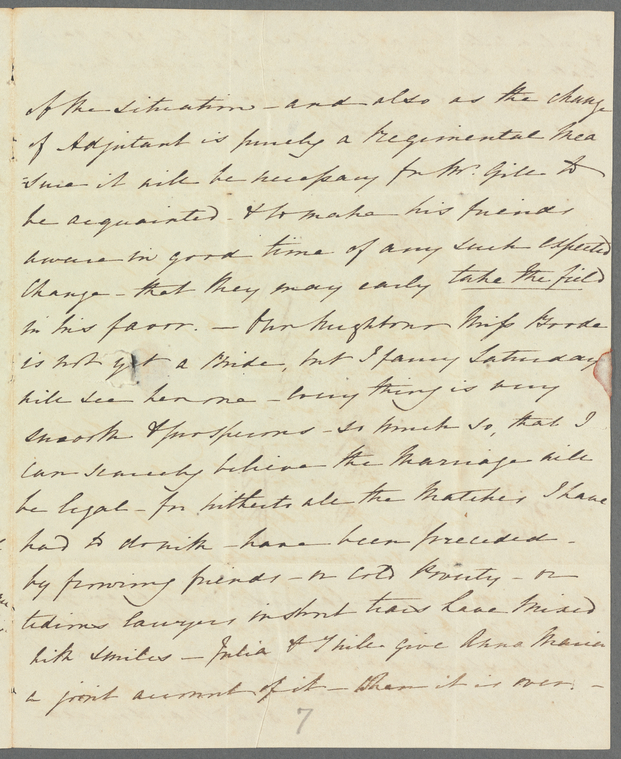 of the situation – and also as the change
of Adjutant is purely a Regimental Mea
sure it will be necessary for Mr. Gill to
be acquainted & to make his friends
aware in good time of any such expected
Change – that they may early take the field
in his favor. – Our Neighbour Miss Goode
is not yet a Bride, but I fancy Saturday
will see her one – every thing is very
smooth & prosperous – so much so, that I
can scarcely believe the Marriage will
be legal – for hitherto all the Matches I have
had to do with – have been preceded –
by frowning friends – or cold Poverty – or
tedious lawyers in short tears have mixed
with smiles – Julia & I will give Anna Maria
a joint account of it – when it is over. –
7